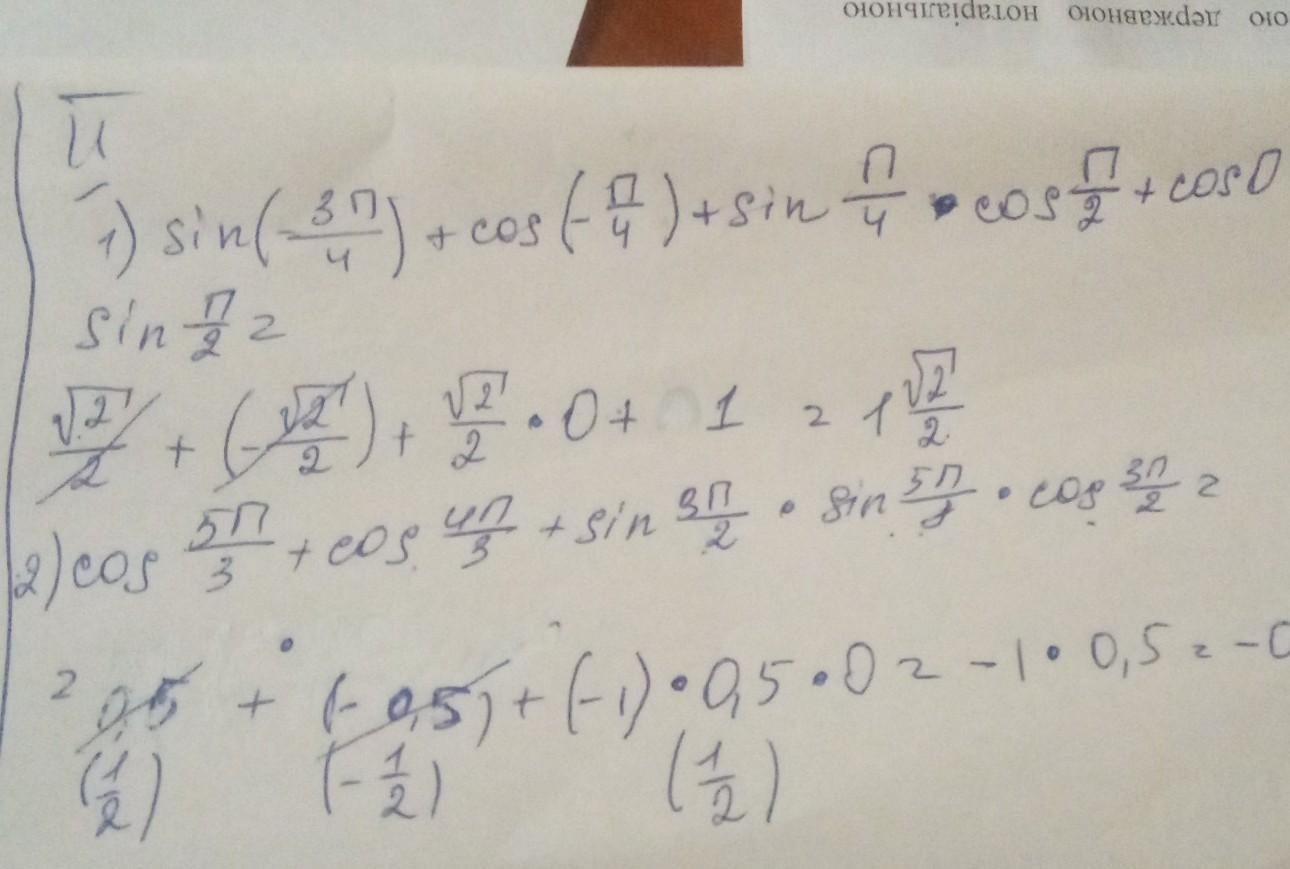 ою державною нотаріальною
II
1) sin(-3π/4) + cos(-π/4) + sin π/4 • cos π/2 + cos0
sin π/2 =
√2/2 + (-√2/2) + √2/2 • 0 + 1 = 1 √2/2
2) cos 5π/3 + cos 4π/3 + sin 3π/2 • sin 5π/ • cos 3π/2 =
= 0,5 + (-0,5) + (-1) • 0,5 • 0 = -1 • 0,5 = -0
(1/2) (-1/2) (1/2)